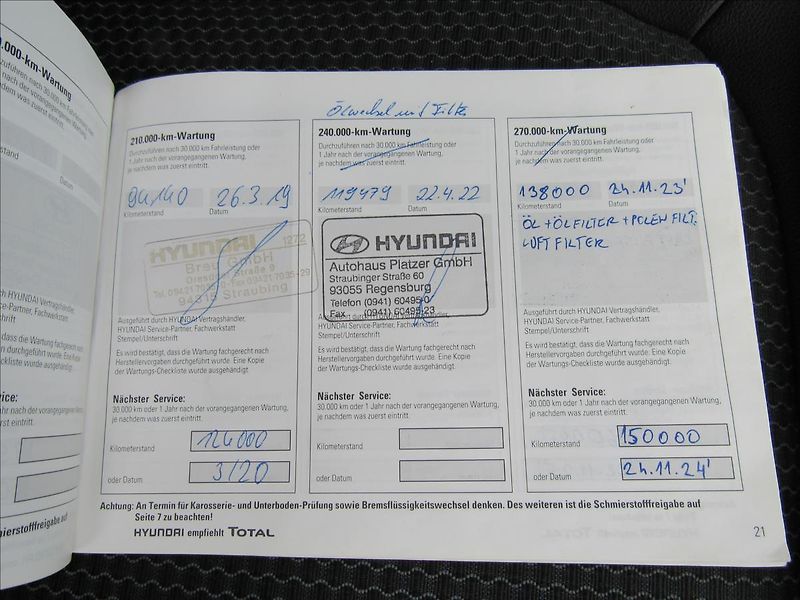 0.000-km-Wartung
Ölwechsel und Filter
210.000-km-Wartung
Durchzuführen nach 30.000 km Fahrleistung oder
1 Jahr nach der vorangegangenen Wartung,
je nachdem was zuerst eintritt.
94140 26.3.19
Kilometerstand Datum
HYUNDAI 1272
Dresdner Straße 9
94315 Straubing
Ausgeführt durch HYUNDAI Vertragshändler,
HYUNDAI Service-Partner, Fachwerkstatt
Stempel/Unterschrift
Es wird bestätigt, dass die Wartung fachgerecht nach
Herstellervorgaben durchgeführt wurde. Eine Kopie
der Wartungs-Checkliste wurde ausgehändigt
Nächster Service:
30.000 km oder 1 Jahr nach der vorangegangenen Wartung,
je nachdem was zuerst eintritt.
Kilometerstand 124000
oder Datum 3/20
240.000-km-Wartung
Durchzuführen nach 30.000 km Fahrleistung oder
1 Jahr nach der vorangegangenen Wartung,
je nachdem was zuerst eintritt.
119479 22.4.22
Kilometerstand Datum
HYUNDAI
Autohaus Platzer GmbH
Straubinger Straße 60
93055 Regensburg
Telefon (0941) 60495-0
Fax (0941) 60495-23
HYUNDAI Service-Partner, Fachwerkstatt
Stempel/Unterschrift
Es wird bestätigt, dass die Wartung fachgerecht nach
Herstellervorgaben durchgeführt wurde. Eine Kopie
der Wartungs-Checkliste wurde ausgehändigt
Nächster Service:
30.000 km oder 1 Jahr nach der vorangegangenen Wartung,
je nachdem was zuerst eintritt.
Kilometerstand
oder Datum
270.000-km-Wartung
Durchzuführen nach 30.000 km Fahrleistung oder
1 Jahr nach der vorangegangenen Wartung,
je nachdem was zuerst eintritt.
138000 24.11.23'
Kilometerstand Datum
ÖL + ÖLFILTER + POLEN FILT.
LUFT FILTER
Ausgeführt durch HYUNDAI Vertragshändler,
HYUNDAI Service-Partner, Fachwerkstatt
Stempel/Unterschrift
Es wird bestätigt, dass die Wartung fachgerecht nach
Herstellervorgaben durchgeführt wurde. Eine Kopie
der Wartungs-Checkliste wurde ausgehändigt
Nächster Service:
30.000 km oder 1 Jahr nach der vorangegangenen Wartung,
je nachdem was zuerst eintritt.
Kilometerstand 150000
oder Datum 24.11.24'
Achtung: An Termin für Karosserie- und Unterboden-Prüfung sowie Bremsflüssigkeitswechsel denken. Des weiteren ist die Schmierstofffreigabe auf
Seite 7 zu beachten!
HYUNDAI empfiehlt TOTAL
21